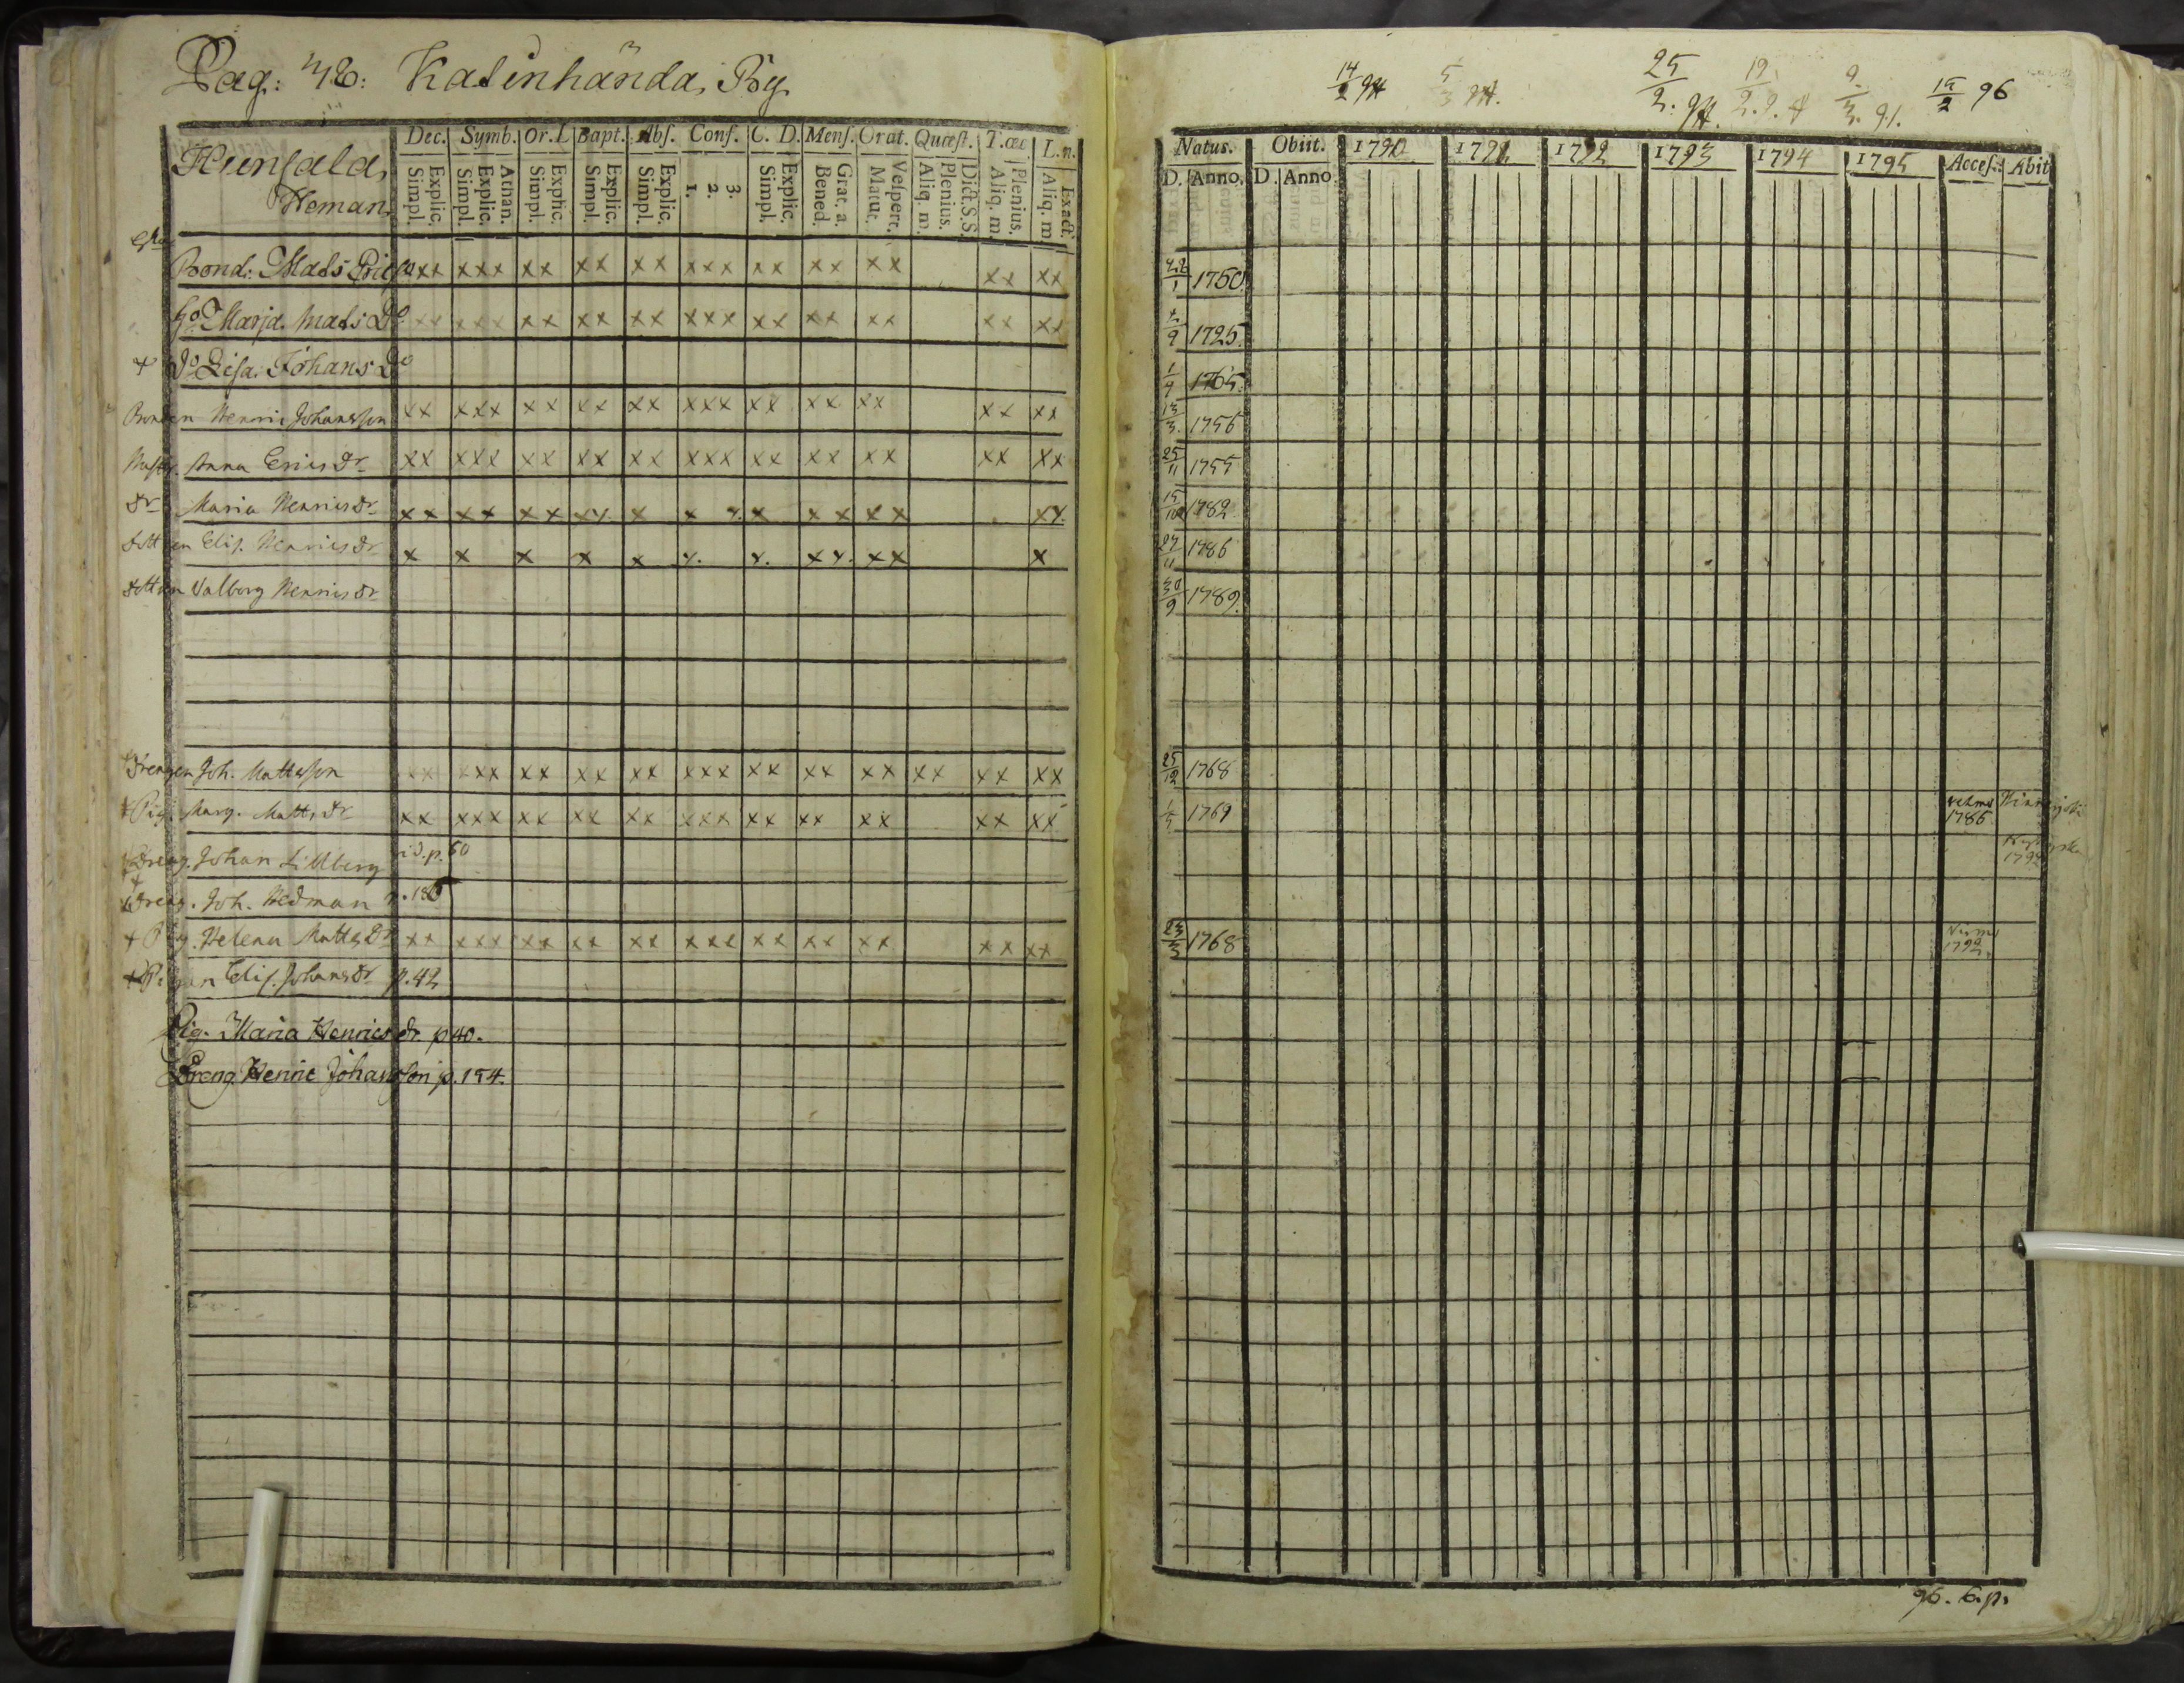 Pag: 48: Katinhända, By.
Hunsala,
Heman.
Dec. Symb. Or. L Bapt. Abs. Conf. C. D. Mens. Orat. Quæst. T. œc. L. n.
Simpl. Explic. Simpl. Explic. Athan. Simpl. Explic. Simpl. Explic. Simpl. Explic. 1. 2. 3. Simpl. Explic. Bened. Grat. a. Matut. Vespert. Aliq. m. Plenius. Dict. S.S. Aliq. m. Plenius. Aliq. m. Exact.
Bond: Mats Eric xx xxx xx xx xx xxx xx xx xx xx xx
Marja Mats Do xx xxx xx xx xx xxx xx xx xx xx xx
+ Do Lisa Johans Do
Bonden Henric Johansson xx xxx xx xx xx xxx xx xx xx xx xx
Anna Erics dr xx xxx xx xx xx xxx xx xx xx xx xx
dr Maria Henrics dr xx xx xx xx x x x x xx xx xx
dottren Elis. Henrics dr x x x x x x. x. xx. xx x
dottren Valborg Henrics dr
Drengen Joh. Mattsson xx xxx xx xx xx xxx xx xx xx xx xx xx
+ Pig. Marg. Matts dr xx xxx xx xx xx xxx xx xx xx xx xx
Dreng. Johan Lillberg vid. p. 60
Dreng. Joh. Hedman p. 186
+ Pig. Helena Matts Dr xx xxx xx xx xx xxx xx xx xx xx xx
+ Pigan Elis. Johans dr p. 42
Pig. Maria Henrics dr. p 40.
Dreng Henric Johansson p. 154.
14/2 94 5/3 25/2. 94. 19/2. 9/3. 91. 15/2 96
Natus. Obiit. 1790 1791 1792 1793 1794 1795 Acces. Abit
D. Anno. D. Anno
28/1 1750.
1725.
1765.
13/3. 1756
25/11 1755
15/10 1782
27/11 1786
30/9 1789.
25/12 1768
1769 1786.
1792
23/3 1768 1792.
96. 6. p.